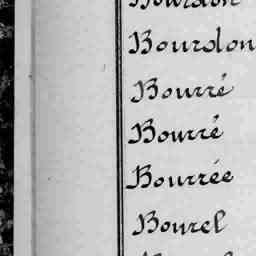 Bourdon
Bourdon
Bourré
Bourré
Bourrée
Bourel